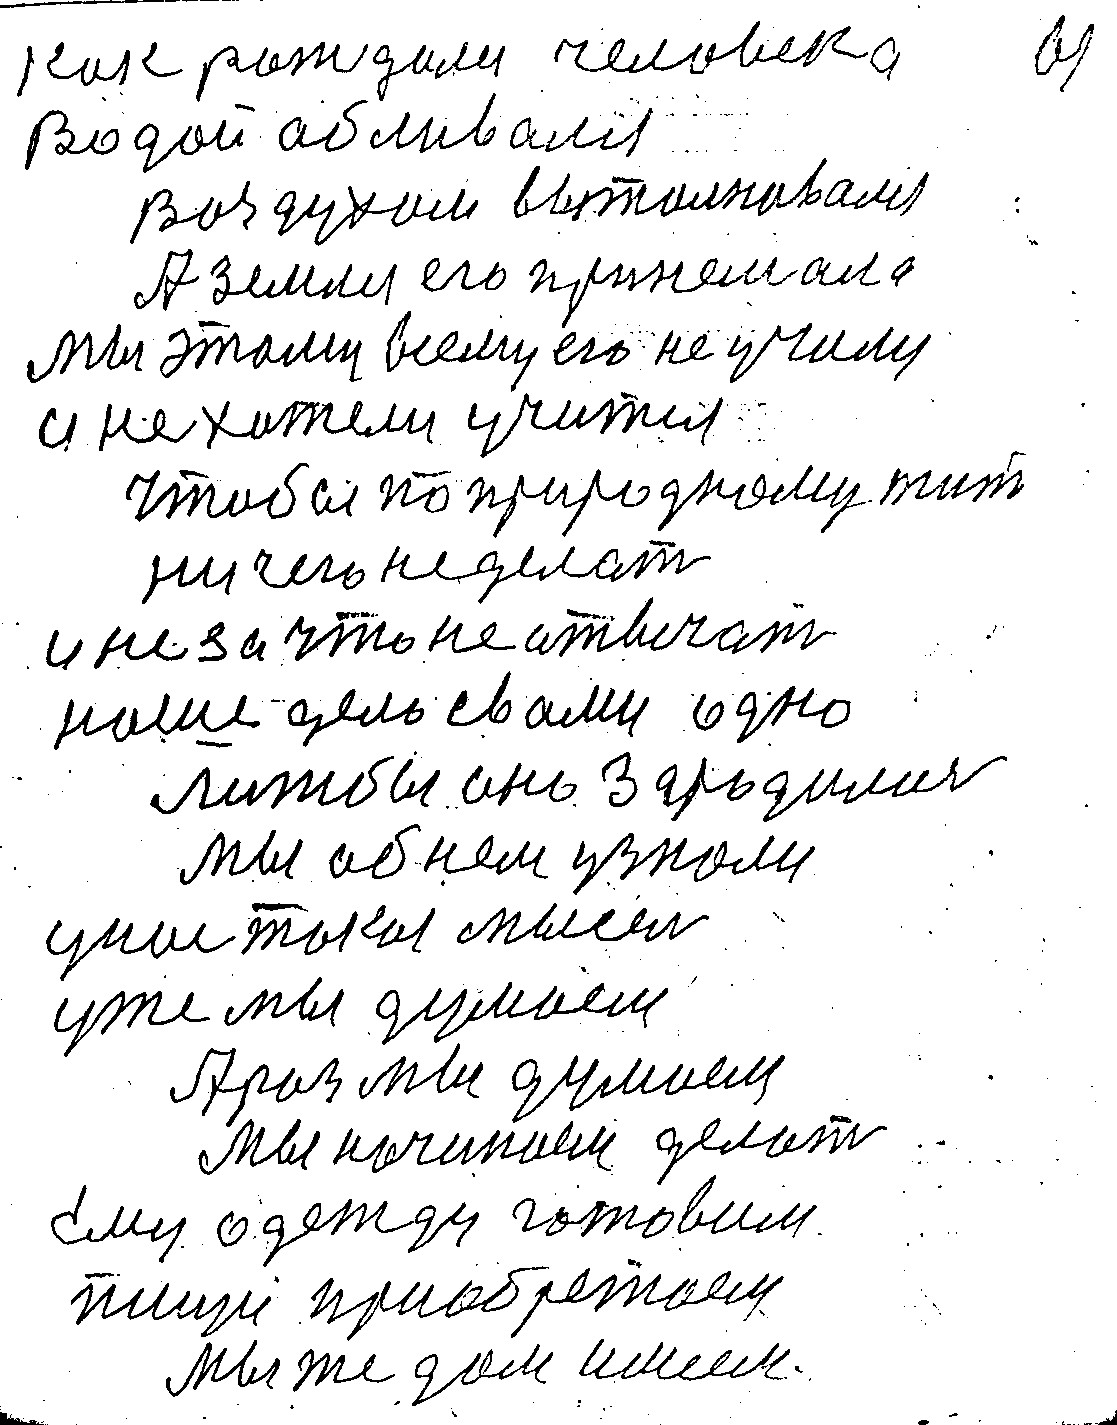 как рождали человека
Водой обливали
воздухом вытолковали
А земля его принемала
мы этому всему его не учили
и не хотели учится
чтобы по природному жит
ни чего не делат
и не за что не отвечат
наше дело свами одно
Лижбы оно Зародилос
мы об нем узнали
унас така мысел
уже мы думаем
А раз мы думаем
мы начинаем делат
Ему одежду готовим
пищу приобретаем
мы же дом имеем.